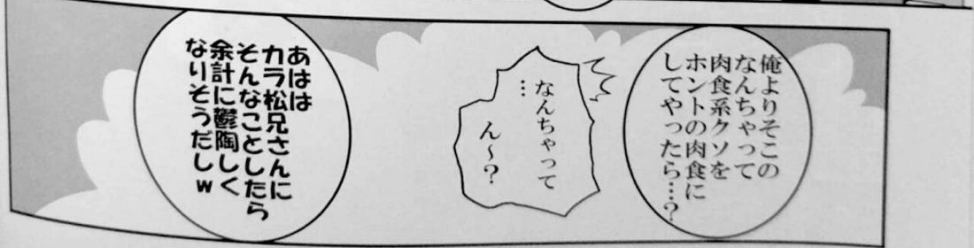 俺よりそこの
なんちゃって
肉食系クソを
ホントの肉食に
してやったら…?
なんちゃって
…
ん～?
あはは
カラ松兄さんに
そんなことしたら
余計に鬱陶しく
なりそうだしw